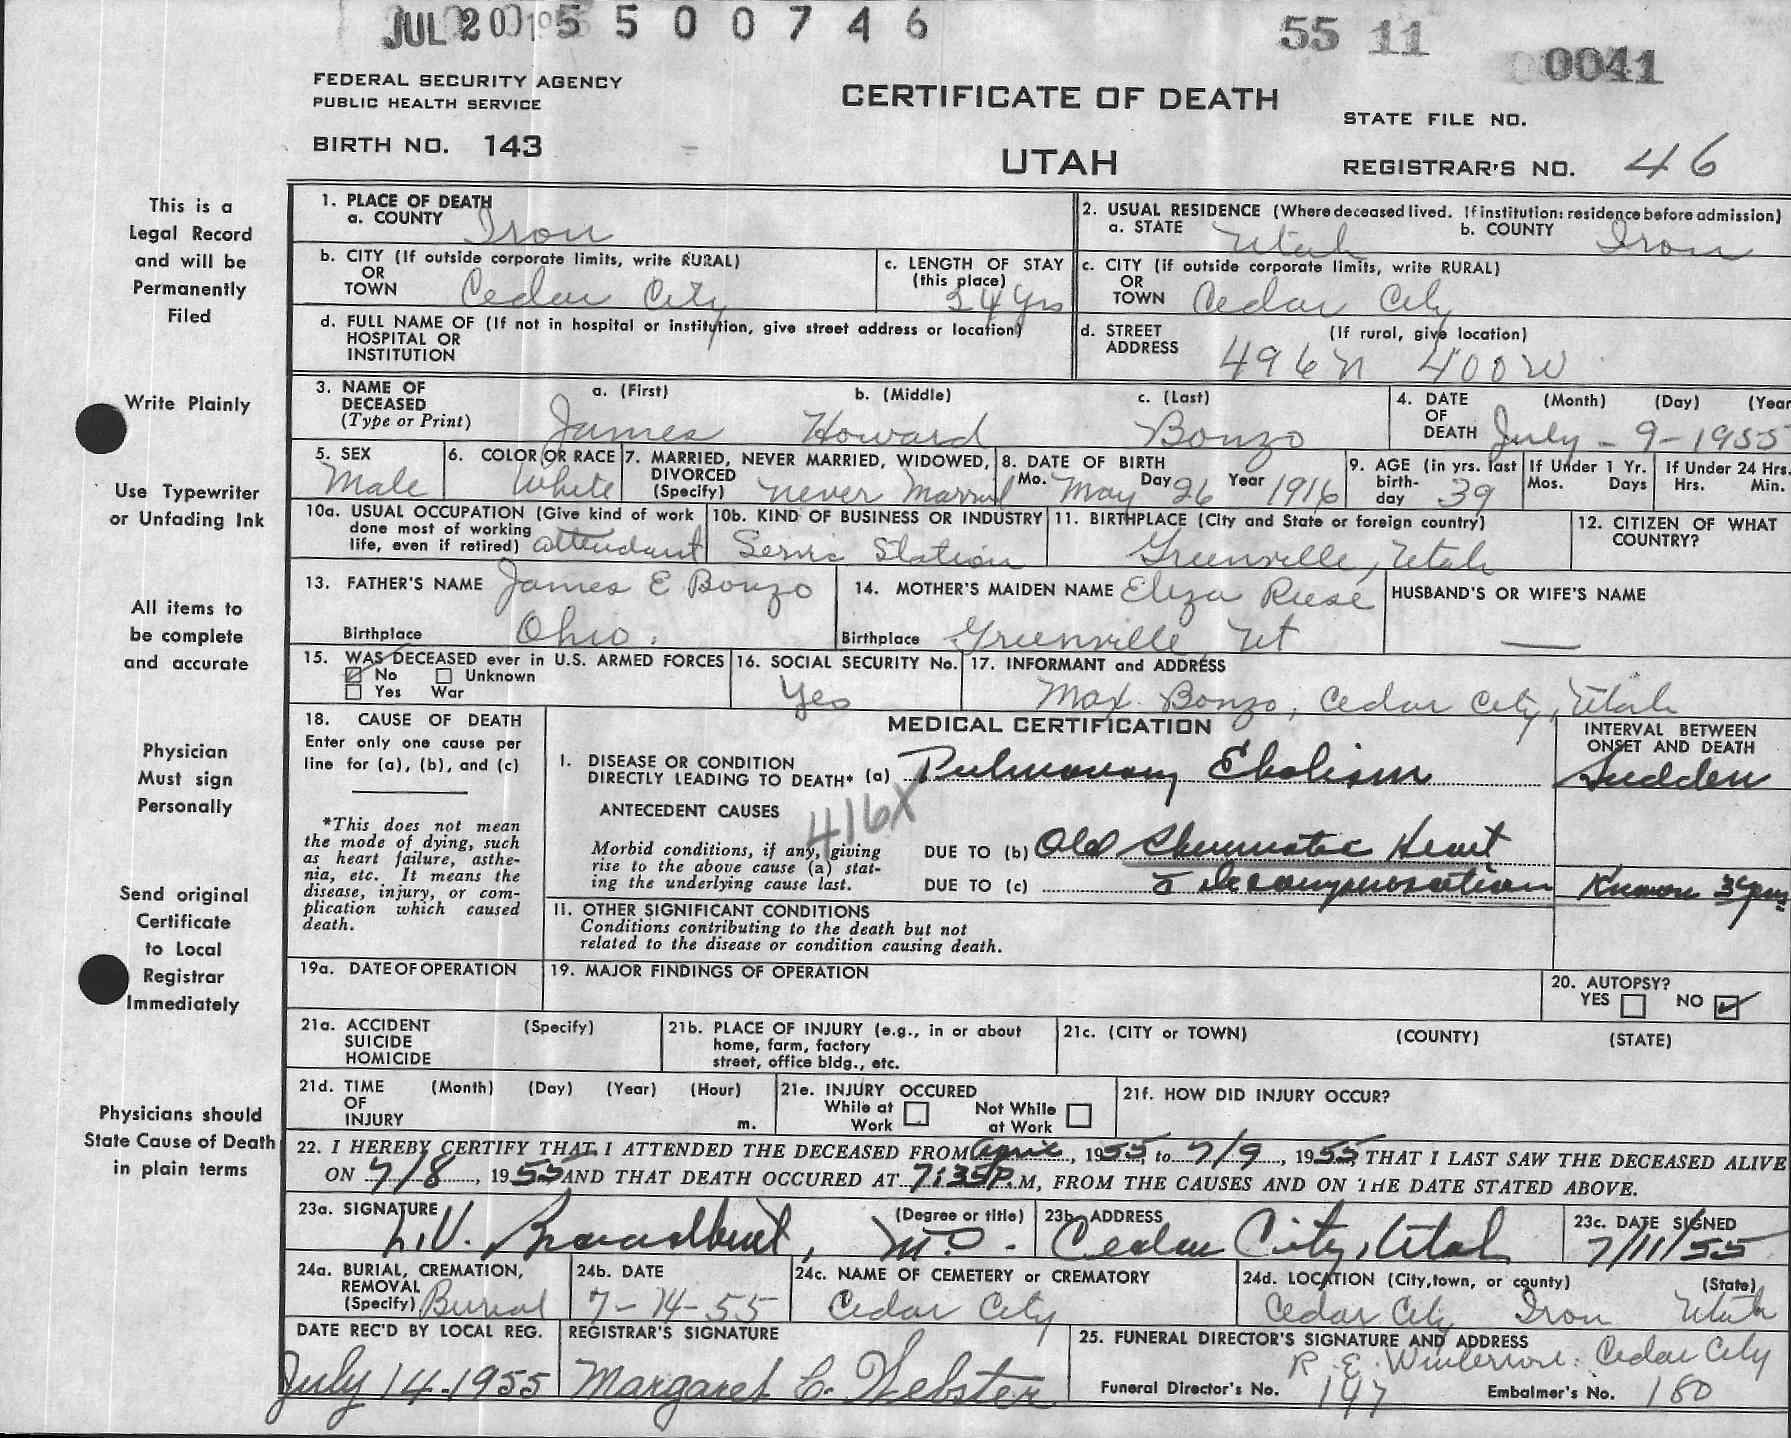 JUL 20 1955 5 0 0 7 4 6
55 11
0041
FEDERAL SECURITY AGENCY
PUBLIC HEALTH SERVICE
CERTIFICATE OF DEATH
STATE FILE NO.
BIRTH NO. 143
UTAH
REGISTRAR'S NO. 46
This is a
Legal Record
and will be
Permanently
Filed
Write Plainly
Use Typewriter
or Unfading Ink
All items to
be complete
and accurate
Physician
Must sign
Personally
Send original
Certificate
to Local
Registrar
Immediately
Physicians should
State Cause of Death
in plain terms
1. PLACE OF DEATH
a. COUNTY Iron
2. USUAL RESIDENCE (Where deceased lived. If institution: residence before admission)
a. STATE Utah b. COUNTY Iron
b. CITY (If outside corporate limits, write RURAL)
OR
TOWN Cedar City
c. LENGTH OF STAY
(this place)
34 yrs
c. CITY (if outside corporate limits, write RURAL)
OR
TOWN Cedar City
d. FULL NAME OF (If not in hospital or institution, give street address or location)
HOSPITAL OR
INSTITUTION
d. STREET (If rural, give location)
ADDRESS 496 N 400 W
3. NAME OF DECEASED (Type or Print)
a. (First) b. (Middle) c. (Last)
James Howard Bonzo
4. DATE OF DEATH (Month) (Day) (Year
July - 9 - 1955
5. SEX
Male
6. COLOR OR RACE
White
7. MARRIED, NEVER MARRIED, WIDOWED,
DIVORCED
(Specify) never Married
8. DATE OF BIRTH
Mo. May Day 26 Year 1916
9. AGE (in yrs. last
birth-
day 39
If Under 1 Yr.
Mos. Days
If Under 24 Hrs.
Hrs. Min.
10a. USUAL OCCUPATION (Give kind of work
done most of working
life, even if retired) attendant
10b. KIND OF BUSINESS OR INDUSTRY
Servic Station
11. BIRTHPLACE (City and State or foreign country)
Greenville, Utah
12. CITIZEN OF WHAT
COUNTRY?
13. FATHER'S NAME James E Bonzo
Birthplace Ohio.
14. MOTHER'S MAIDEN NAME Eliza Reese
Birthplace Greenville, Ut
HUSBAND'S OR WIFE'S NAME
15. WAS DECEASED ever in U.S. ARMED FORCES
No Unknown
Yes War
16. SOCIAL SECURITY No.
Yes
17. INFORMANT and ADDRESS
Max Bonzo, Cedar City, Utah
18. CAUSE OF DEATH
Enter only one cause per
line for (a), (b), and (c)
*This does not mean
the mode of dying, such
as heart failure, asthe-
nia, etc. It means the
disease, injury, or com-
plication which caused
death.
MEDICAL CERTIFICATION
INTERVAL BETWEEN
ONSET AND DEATH
I. DISEASE OR CONDITION
DIRECTLY LEADING TO DEATH* (a) Pulmonary Ebolism
Sudden
ANTECEDENT CAUSES
416X
Morbid conditions, if any, giving
rise to the above cause (a) stat-
ing the underlying cause last.
DUE TO (b) Old Rheumatic Heart
DUE TO (c) c̄ decompensation
Known
II. OTHER SIGNIFICANT CONDITIONS
Conditions contributing to the death but not
related to the disease or condition causing death.
19a. DATE OF OPERATION
19. MAJOR FINDINGS OF OPERATION
20. AUTOPSY?
YES NO
21a. ACCIDENT (Specify)
SUICIDE
HOMICIDE
21b. PLACE OF INJURY (e.g., in or about
home, farm, factory
street, office bldg., etc.
21c. (CITY or TOWN) (COUNTY) (STATE)
21d. TIME (Month) (Day) (Year) (Hour)
OF
INJURY m.
21e. INJURY OCCURED
While at Work Not While at Work
21f. HOW DID INJURY OCCUR?
22. I HEREBY CERTIFY THAT I ATTENDED THE DECEASED FROM April, 1955, to 7/9, 1955, THAT I LAST SAW THE DECEASED ALIVE
ON 7/8, 1955 AND THAT DEATH OCCURED AT 7:35 P.M, FROM THE CAUSES AND ON THE DATE STATED ABOVE.
23a. SIGNATURE (Degree or title)
L.V. Broadbent, M.D.
23b. ADDRESS
Cedar City, Utah
23c. DATE SIGNED
7/11/55
24a. BURIAL, CREMATION,
REMOVAL
(Specify) Burial
24b. DATE
7-14-55
24c. NAME OF CEMETERY or CREMATORY
Cedar City
24d. LOCATION (City, town, or county) (State)
Cedar City Iron Utah
DATE REC'D BY LOCAL REG.
July 14-1955
REGISTRAR'S SIGNATURE
Margaret C. Webster
25. FUNERAL DIRECTOR'S SIGNATURE AND ADDRESS
R. E. Cedar City
Funeral Director's No. 147 Embalmer's No. 180